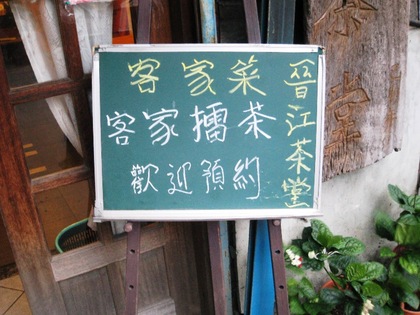 客家菜
客家擂茶
歡迎預約
晉江茶堂
茶堂